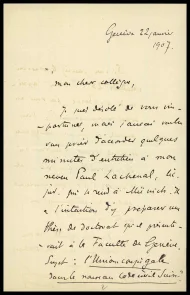 Genève 22 janvier
1907.
mon cher collègue,
Je suis désolé de vous im-
-portuner, mais j'aurais voulu
vous prier d'accorder quelques
minutes d'entretien à mon
neveu Paul Lachenal, lic.
jur. qui se rend à Munich, et
a l'intention d'y préparer une
thèse de doctorat qui se présente-
-rait à la Faculté de Genève.
Sujet: l'Union conjugale
dans le nouveau Code civil Suisse